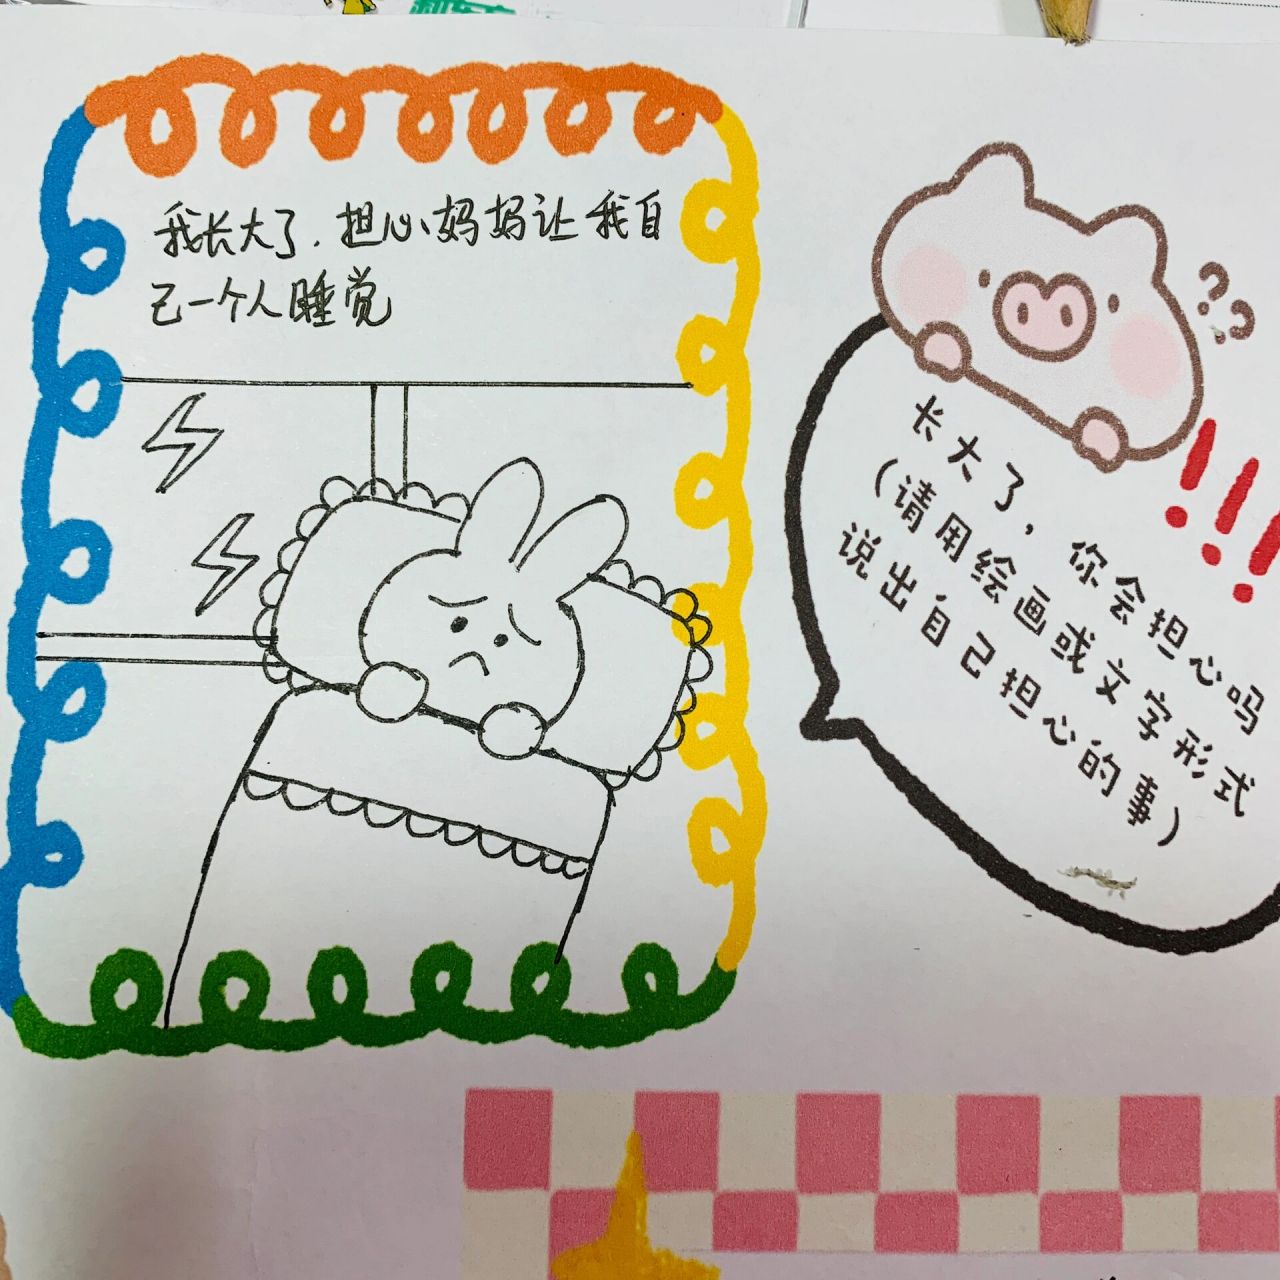 我长大了.担心妈妈让我自
己一个人睡觉
??
长大了，你会担心吗
!!!
（请用绘画或文字形式
说出自己担心的事）